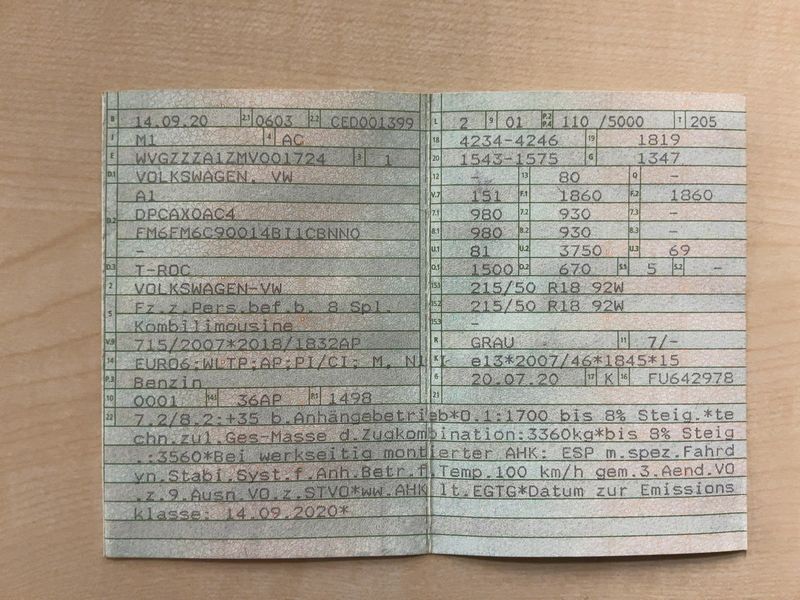 B 14.09.20 2.1 0603 2.2 CED001399
J M1 4 AC
E WVGZZZA1ZMV001724 3 1
D.1 VOLKSWAGEN, VW
A1
D.2 DPCAX0AC4
FM6FM6C90014BI1CBNN0
-
D.3 T-ROC
2 VOLKSWAGEN-VW
5 Fz.z.Pers.bef.b. 8 Spl.
Kombilimousine
V.9 715/2007*2018/1832AP
14 EURO6;WLTP;AP;PI/CI; M, N1 I
P.3 Benzin
10 0001 14.1 36AP P.1 1498
L 2 9 01 P.2 P.4 110 /5000 T 205
18 4234-4246 19 1819
20 1543-1575 G 1347
12 - 13 80 Q -
V.7 151 F.1 1860 F.2 1860
7.1 980 7.2 930 7.3 -
8.1 980 8.2 930 8.3 -
U.1 81 U.2 3750 U.3 69
O.1 1500 O.2 670 S.1 5 S.2 -
15.1 215/50 R18 92W
15.2 215/50 R18 92W
15.3 -
R GRAU 11 7/-
K e13*2007/46*1845*15
6 20.07.20 17 K 16 FU642978
21
22 7.2/8.2:+35 b.Anhängebetrieb*O.1:1700 bis 8% Steig.*te
chn.zul.Ges-Masse d.Zugkombination:3360kg*bis 8% Steig
.:3560*Bei werkseitig montierter AHK: ESP m.spez.Fahrd
yn.Stabi.Syst.f.Anh.Betr.f.Temp.100 km/h gem.3.Aend.VO
.z.9.Ausn.VO.z.STVO*ww.AHK lt.EGTG*Datum zur Emissions
klasse: 14.09.2020*